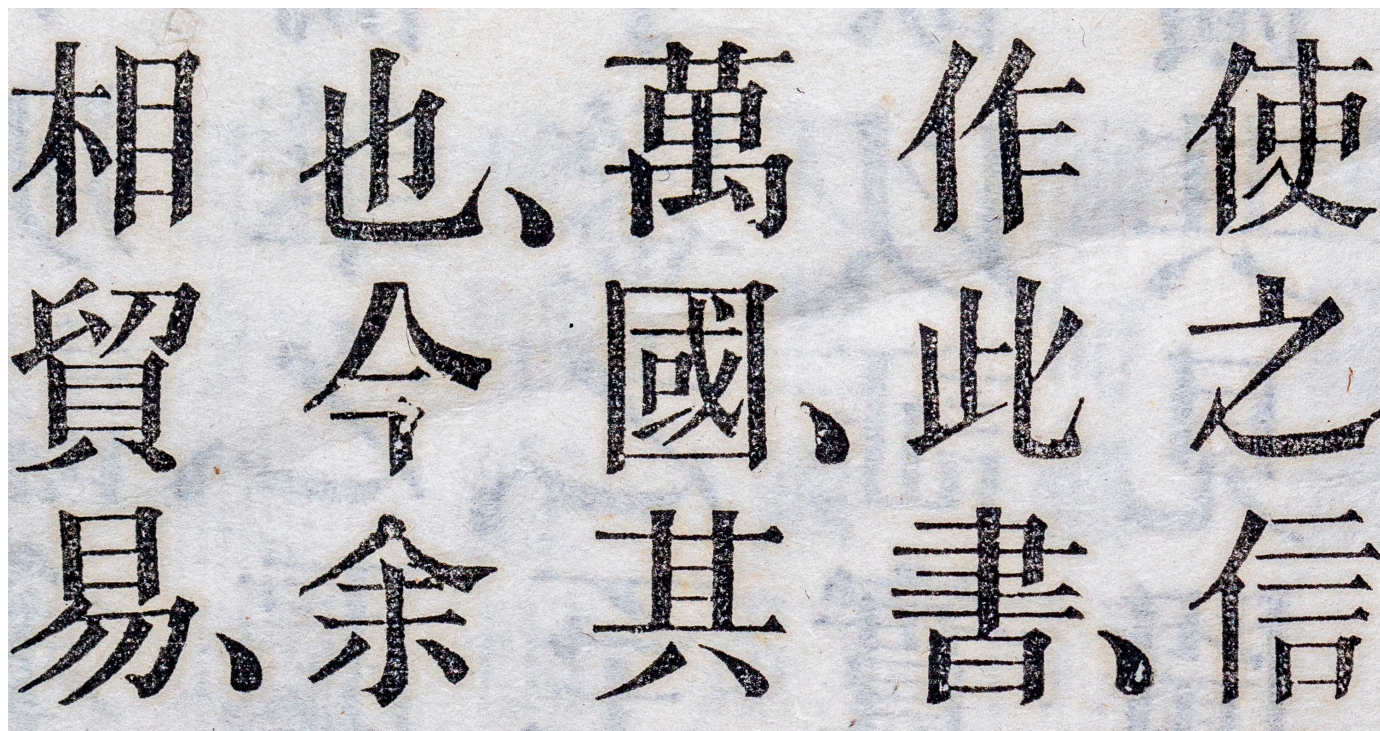 使之信
作此書、
萬國、其
也、今余
相貿易、